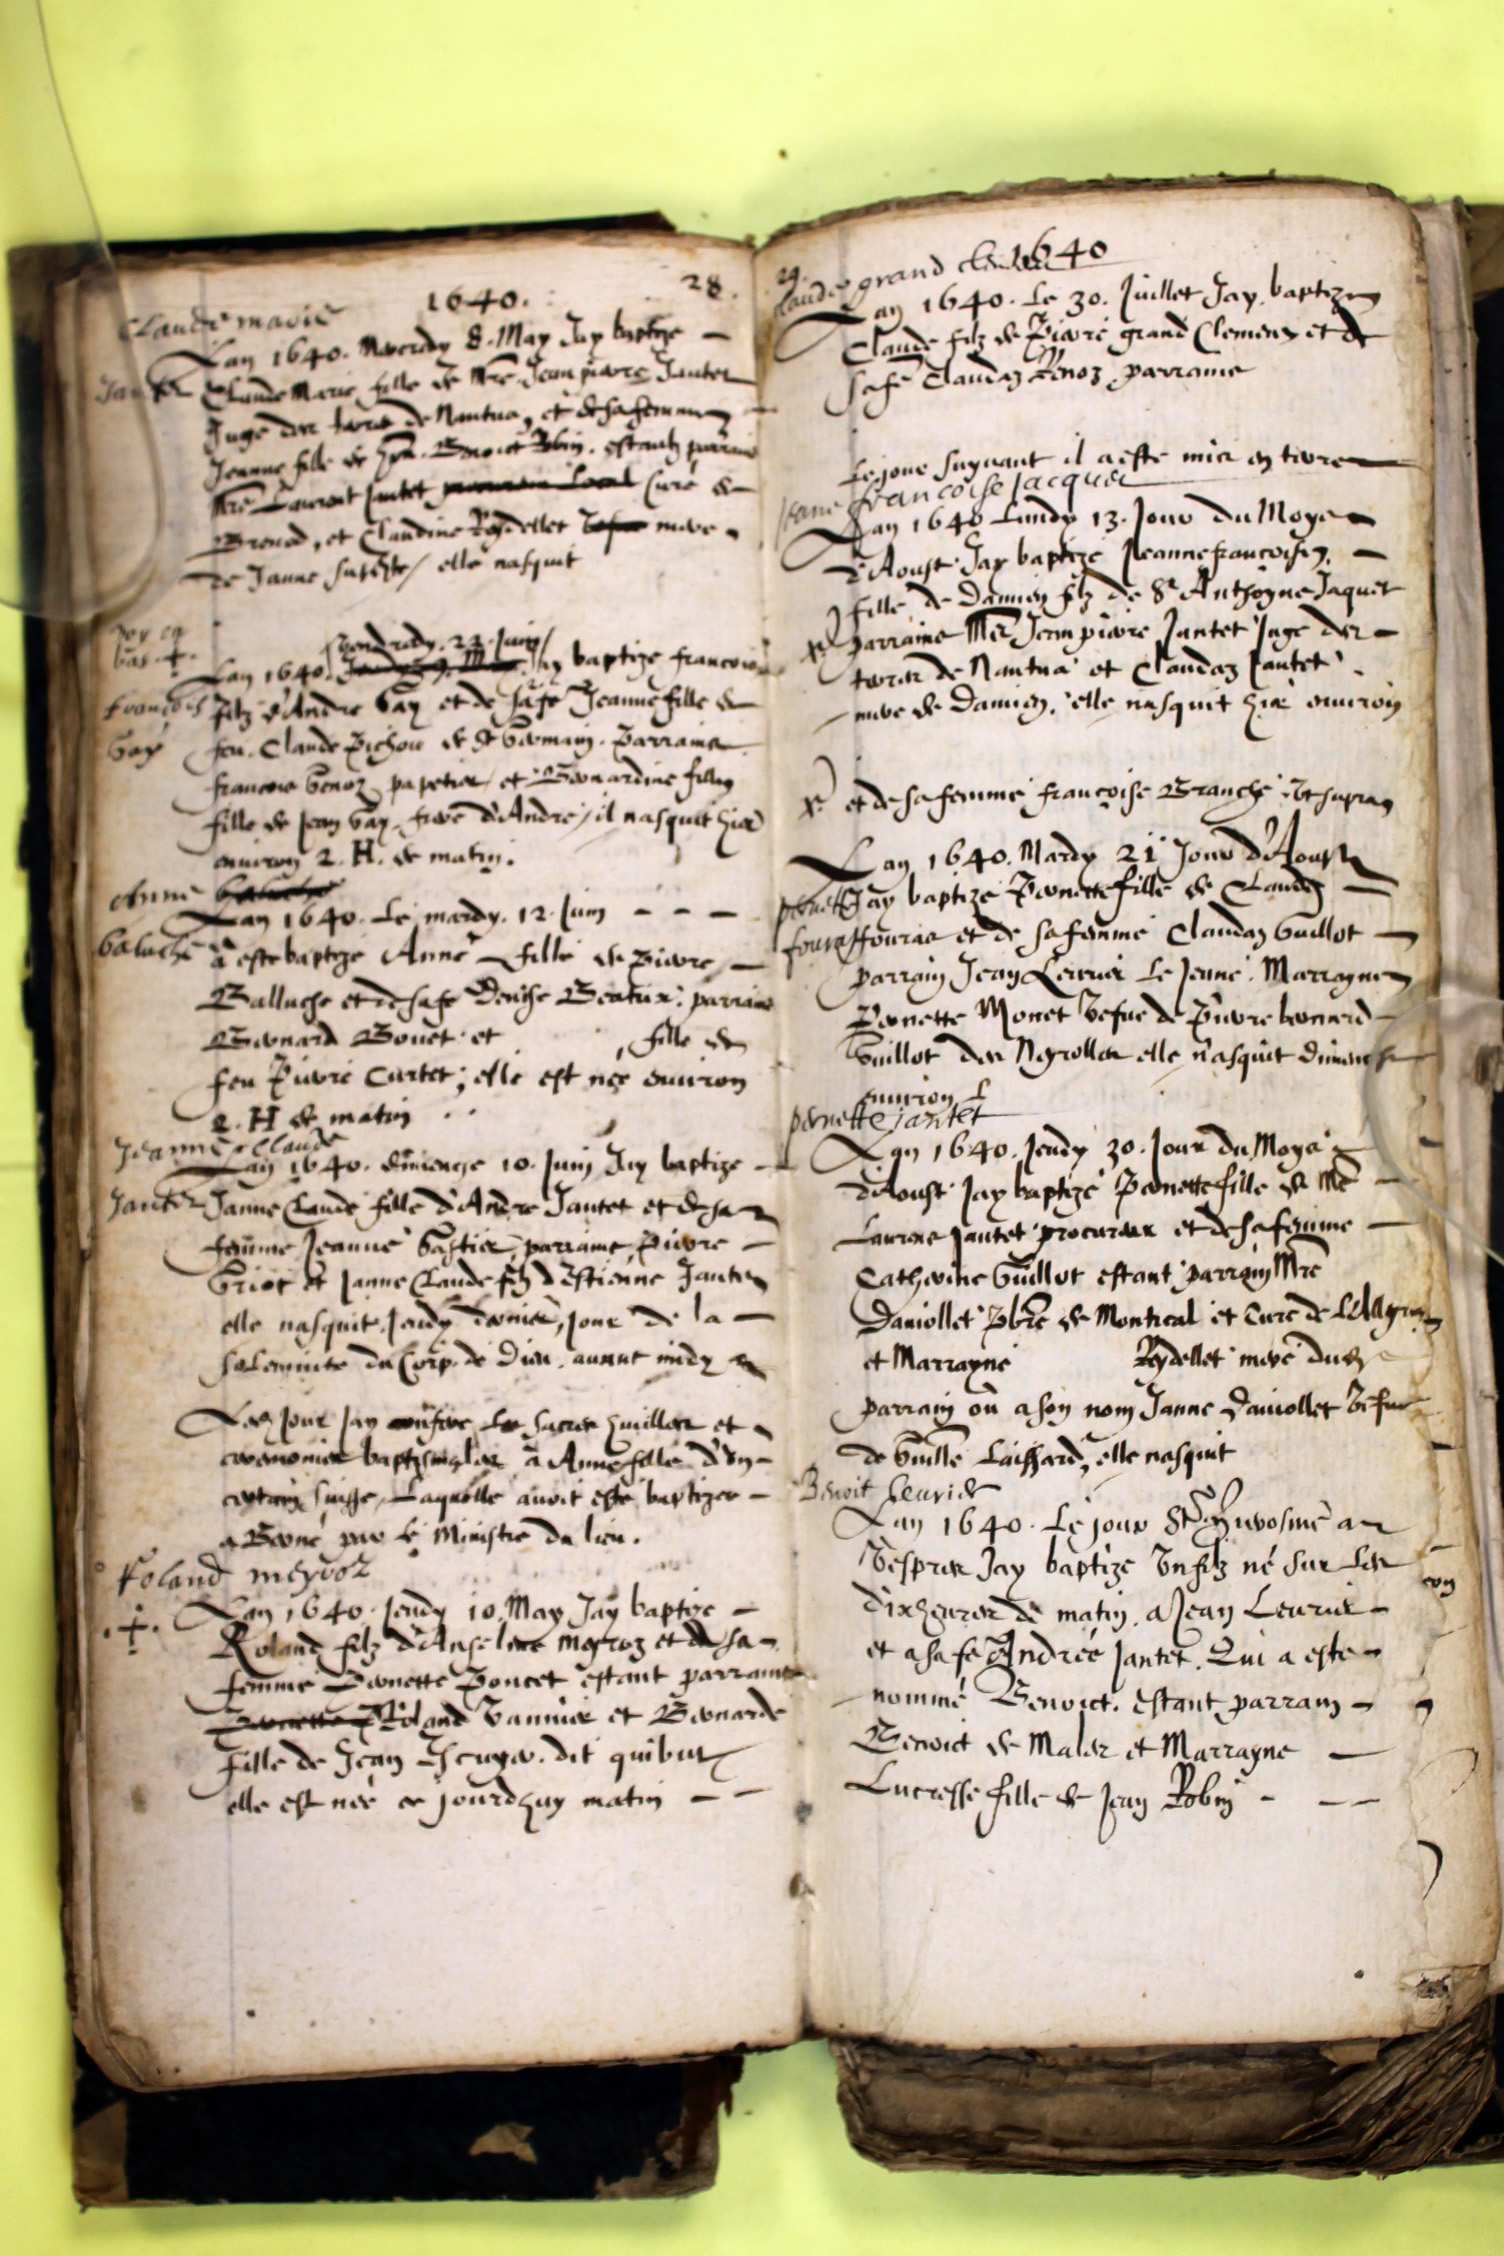 1640.
28.
Claude marie
Lan 1640. Mecrdy 8. May Jay baptize
Jantet
Claude Marie fille de Mre Jean pierre Jantet
Juge des terres de Nantua, et de sa femme
Jeanne fille de Benoict Robin. estantz parrains
Mre Laurent Jantet Curé de
Brenod, et Claudine Reydellet mere
de Janne susdite / elle nasquit
vendredy. 22. Juin
Lan 1640. Jay baptize francois
francois
filz d'Andre Gay et de sa fe Jeanne fille de
Gay
feu. Claude Pichon de St Germain. Parrains
francois Genoz papetier et Bernardine
fille de Jean Gay, frere d'André / il nasquit hier
environ 2. H. de matin.
Anne
Lan 1640. Le mardy. 12. Juin - - -
baluche
a esté baptize Anne fille de Pierre
Balluche et de sa fe Denise Beatrix. parrains
Bernard Bouet et , fille de
feu Pierre Curtet; elle est née environ
2. H de matin . .
Jeanne Claude
Lan 1640. dimenche 10. Juin Jay baptize
Jantet
Janne Claude fille d'Andre Jantet et de sa
femme Jeanne Gastier, parrains Pierre
Griot et Janne Claude filz d'Estienne Jantet
elle nasquit Jeudy dernier, jour de la
solemnite du Corps de Dieu. auant midy
Led. Jour Jay conferé les sacrees huilles et
ceremonies baptismales a Anne fille d'un
certain suisse, Laquelle auoit esté baptizee
a Berne par le Ministre du lieu.
Roland meyroz
Lan 1640. Jeudy 10. May Jay baptize
Roland filz d'Anselme Meyroz et de sa
femme Pernette Poncet estant parrains
Roland Vannier et Bernarde
fille de Jean dit quibut
elle est née ce jourdhuy matin - -
29.
1640
Claude grand clement
Lan 1640. Le 30. Juillet Jay. baptizé
Claude filz de Pierre grand Clement et de
sa fe Claudaz Genoz parrains
Le jour suyuant il a esté mis en terre
Jeane francoise jacquet
Lan 1640 Lundy 13. Jour du Moys
d'Aoust Jay baptize Jeanne francoise
fille de Damien filz de Sr Anthoyne Jaquet
Parrains Mre Jean pierre Jantet Juge des
terres de Nantua et Claudaz Jantet
mere de Damien. elle nasquit hier environ
et de sa femme françoise Branche Ut supra
Lan 1640. Mardy 21 Jour d'Aoust
pernette
Jay baptize Pernette fille de Claude
fouras
ffouras et de sa femme Claudaz Guillot
parrain Jean Leurier le Jeune. Marrayne
Pernette Monet Vefue de Pierre bernard
Guillot des Neyrolles elle nasquit dimenche
environ L
pernette jantet
Lan 1640. Jeudy 30. Jour du Moys
d'Aoust Jay baptizé Pernette fille de Mre
Laurens Jantet procureur et de sa femme
Catherine Guillot estant parrain Mre
Daniollet Pbre de Montreal et Curé de
et Marrayne Reydellet mere dud.
parrain ou a son nom Janne Daniollet Vefue
de Guille Laissard, elle nasquit
Benoit leurier
Lan 1640. Le jour St Hierosme a
Vespres Jay baptize Un filz né sur les
dix heures de matin. a Jean Leurier
et a sa fe Andrée Jantet. Qui a esté
nommé Benoict. estant parrain
Benoict de Males et Marrayne
Lucresse fille de Jean Robin - - -